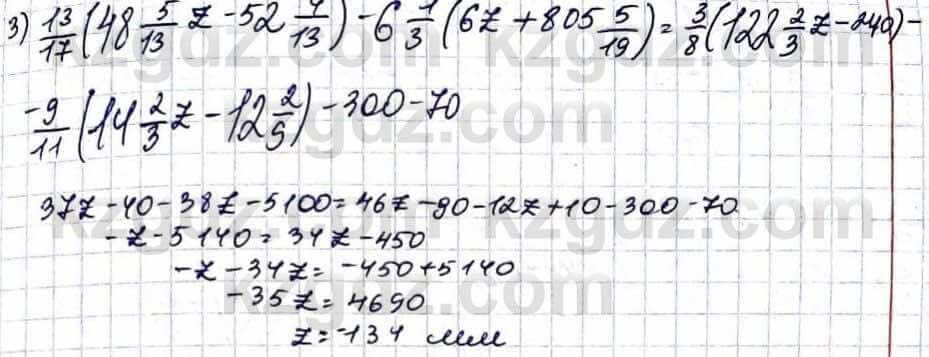 3) 13/17 (48 5/13 z - 52 4/13) - 6 1/3 (6z + 805 5/19) = 3/8 (122 2/3 z - 240) -
- 9/11 (14 2/3 z - 12 2/9) - 300 - 70
37z - 40 - 38z - 5100 = 46z - 90 - 12z + 10 - 300 - 70
- z - 5140 = 34z - 450
- z - 34z = - 450 + 5140
- 35z = 4690
z = - 134 мм